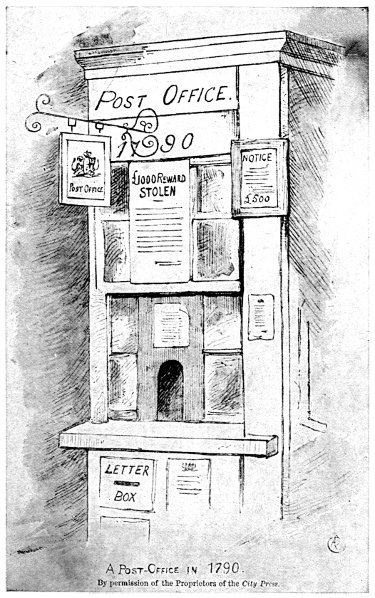 POST OFFICE.
1790
POST OFFICE
£1000 REWARD
STOLEN
NOTICE
£500
LETTER
BOX
A POST-OFFICE IN 1790.
By permission of the Proprietors of the City Press.